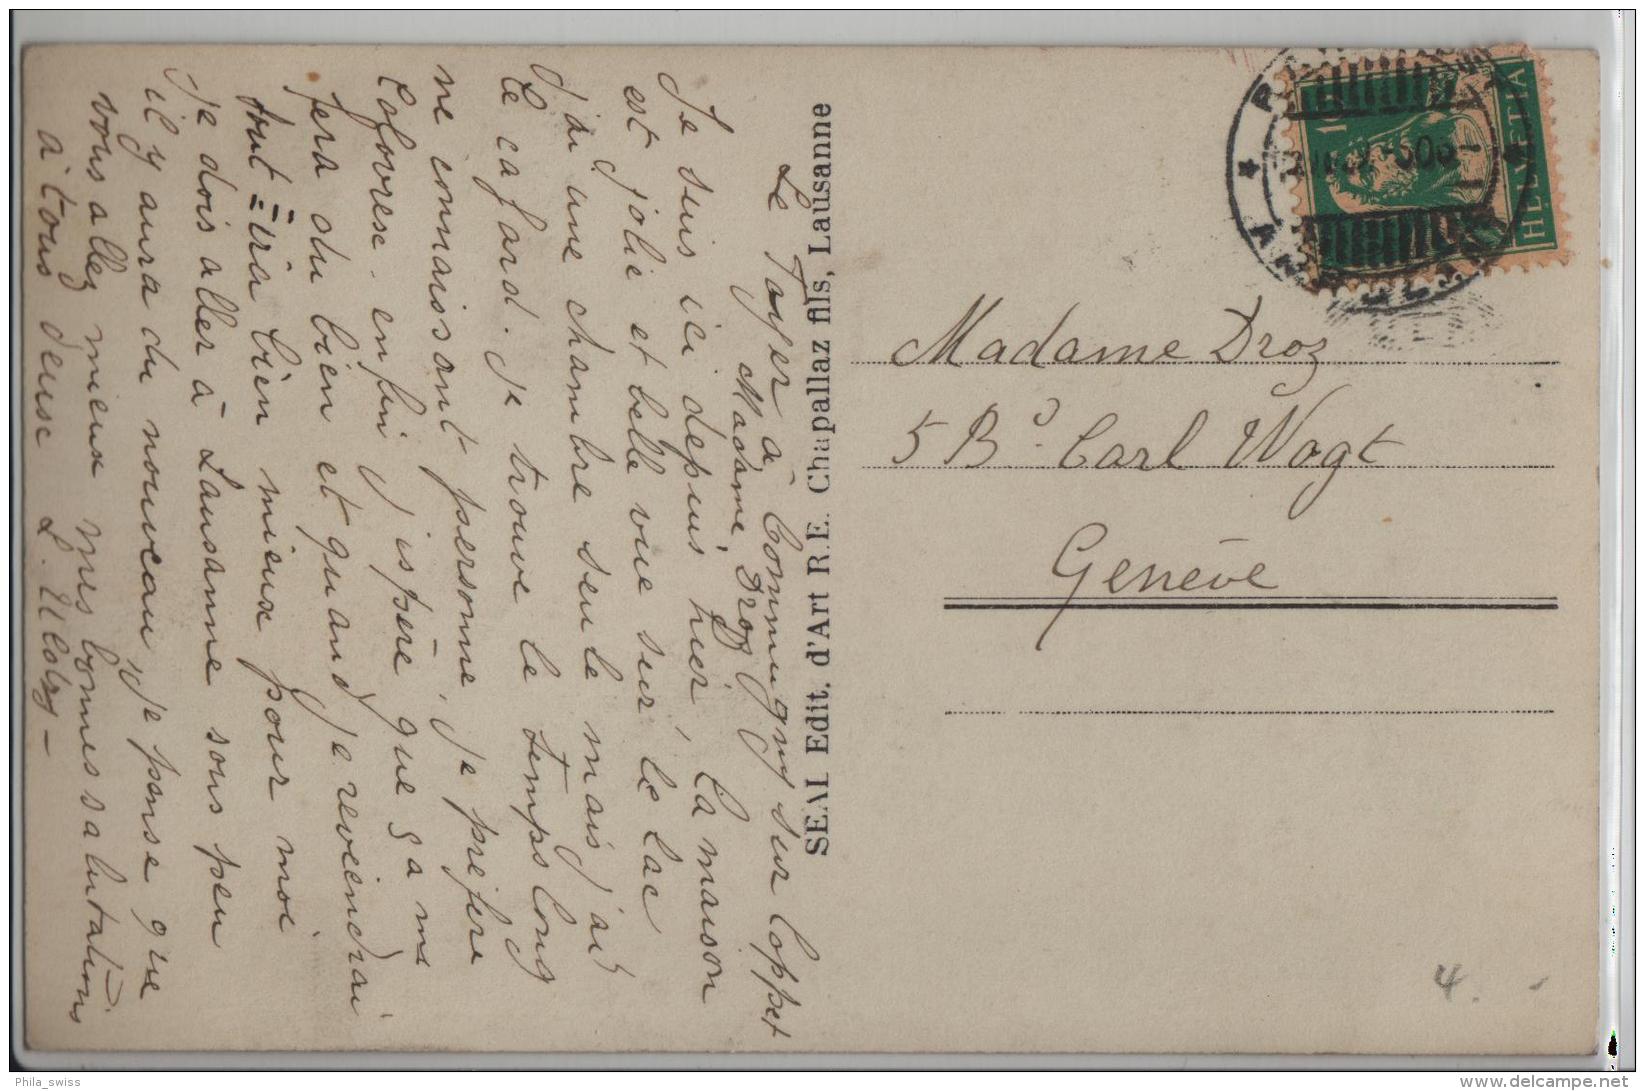 Le Foyer à Commugny sur Coppet
Madame Droz
Je suis ici depuis hier, la maison
est jolie et belle vue sur le lac
j'ai une chambre seule mais j'ai
le cafard. je trouve le temps long
ne connaissant personne, je préfère
enfin j'espère que ça me
fera du bien et quand je reviendrai
tout ira bien mieux pour moi
je dois aller à Lausanne sous peu
il y aura du nouveau, je pense que
vous allez mieux mes bonnes salutations
à tous deux L.
SEAI Edit. d'Art R.E. Chapallaz fils, Lausanne
HELVETIA
Madame Droz
5 Bd. Carl Vogt
Genève
4. -
Phila_swiss
delcampe.net